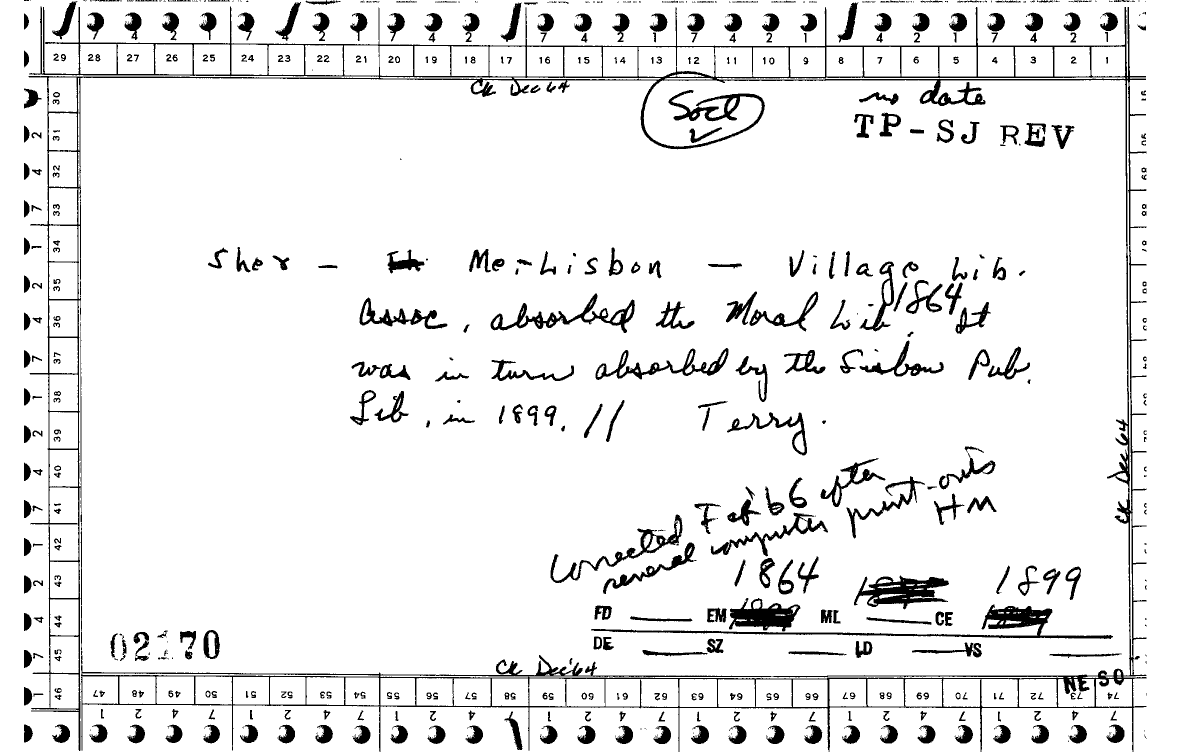 7 4 2 1 7 4 2 1 7 4 2 1 7 4 2 1 7 4 2 1 7 4 2 1 7 4 2 1
29 28 27 26 25 24 23 22 21 20 19 18 17 16 15 14 13 12 11 10 9 8 7 6 5 4 3 2 1
CK Dec 64
Socl
no date
TP-SJ REV
Sher - Me.-Lisbon - Village Lib.
Assoc, absorbed the Moral Lib. 1864 It
was in turn absorbed by the Lisbon Pub.
Lib, in 1899. // Terry.
Corrected F of '66 after
several computer print-outs
HM
1864 1899
FD EM ML CE
DE SZ LD VS
02170
CK Dec '64
CK Dec 64
NE SO
30 31 32 33 34 35 36 37 38 39 40 41 42 43 44 45 46
47 48 49 50 51 52 53 54 55 56 57 58 59 60 61 62 63 64 65 66 67 68 69 70 71 72 73 74
1 2 4 7 1 2 4 7 1 2 4 7 1 2 4 7 1 2 4 7 1 2 4 7 1 2 4 7